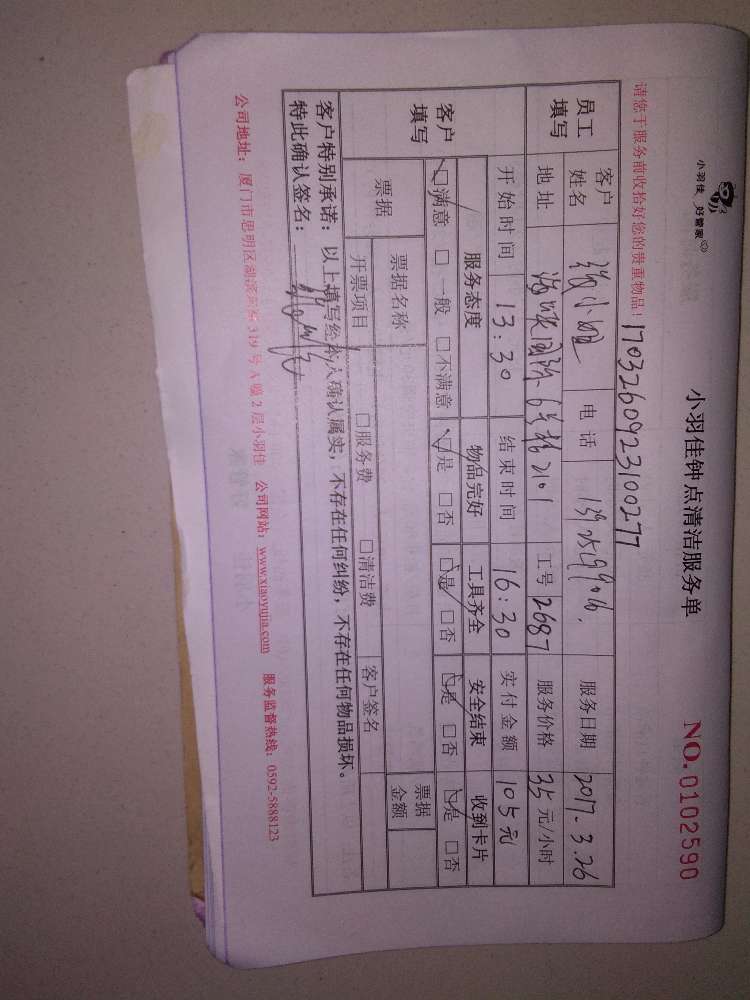 小羽佳 好管家
小羽佳钟点清洁服务单
NO.0102590
请您于服务前收拾好您的贵重物品!
1703260923100277
员工填写 客户姓名 小姐 电话 服务日期 2017.3.26
地址 6号楼2101 工号 2687 服务价格 35元/小时
开始时间 13:30 结束时间 16:30 实付金额 105元
客户填写 服务态度 物品完好 工具齐全 安全结束 收到卡片
□满意 □一般 □不满意 □是 □否 □是 □否 □是 □否 □是 □否
票据 票据名称 票据金额
开票项目 □服务费 □清洁费 客户签名
客户特别承诺:以上填写经本人确认属实,不存在任何纠纷,不存在任何物品损坏。
特此确认签名:
公司地址:厦门市思明区湖滨东路319号A幢2层小羽佳 公司网站:www.xiaoyujia.com 服务监督热线:0592-5888123